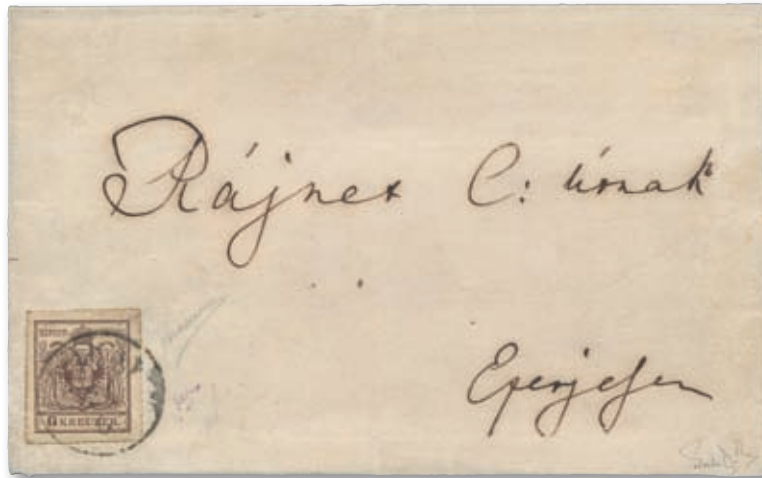 Rájner C: úrnak
Eperjesen
6 KREUZER.